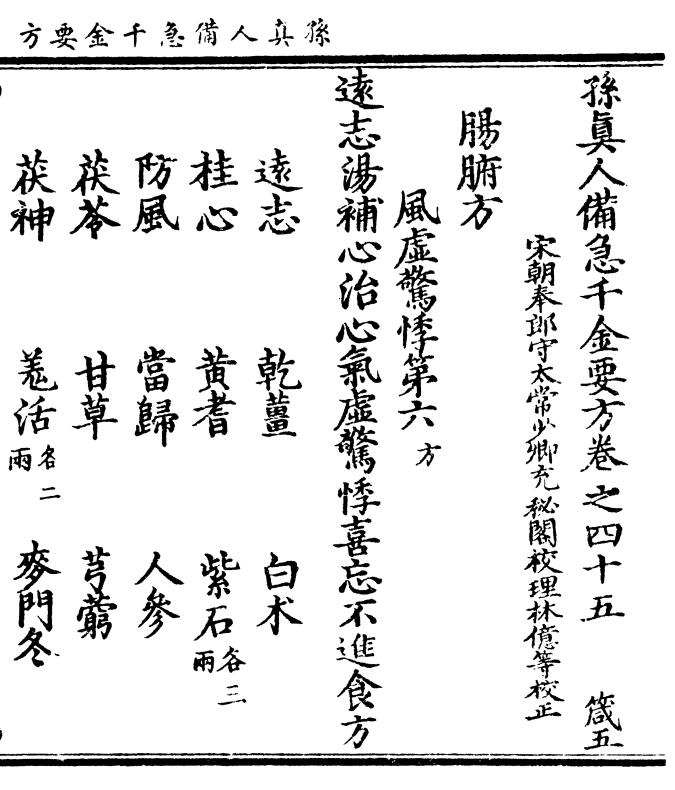 孫真人備急千金要方
孫眞人備急千金要方卷之四十五　箴五
宋朝奉郎守太常少卿充秘閣校理林億等校正
腸腑方
風虛驚悸第六 方
遠志湯補心治心氣虛驚悸喜忘不進食方
遠志　乾薑　白术
桂心　黃耆　紫石各三兩
防風　當歸　人參
茯苓　甘草　芎藭
茯神　羗活各二兩　麥門冬